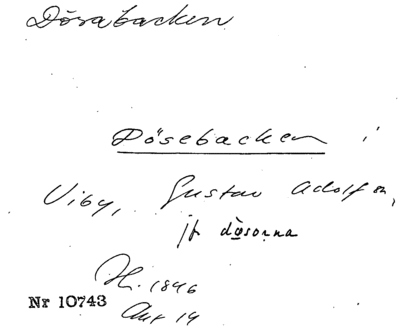 Dösabacken
Dösebacken i
Viby, Gustav Adolf sn,
jf dösorna
H. 1846
Nr 10743
Akt 14